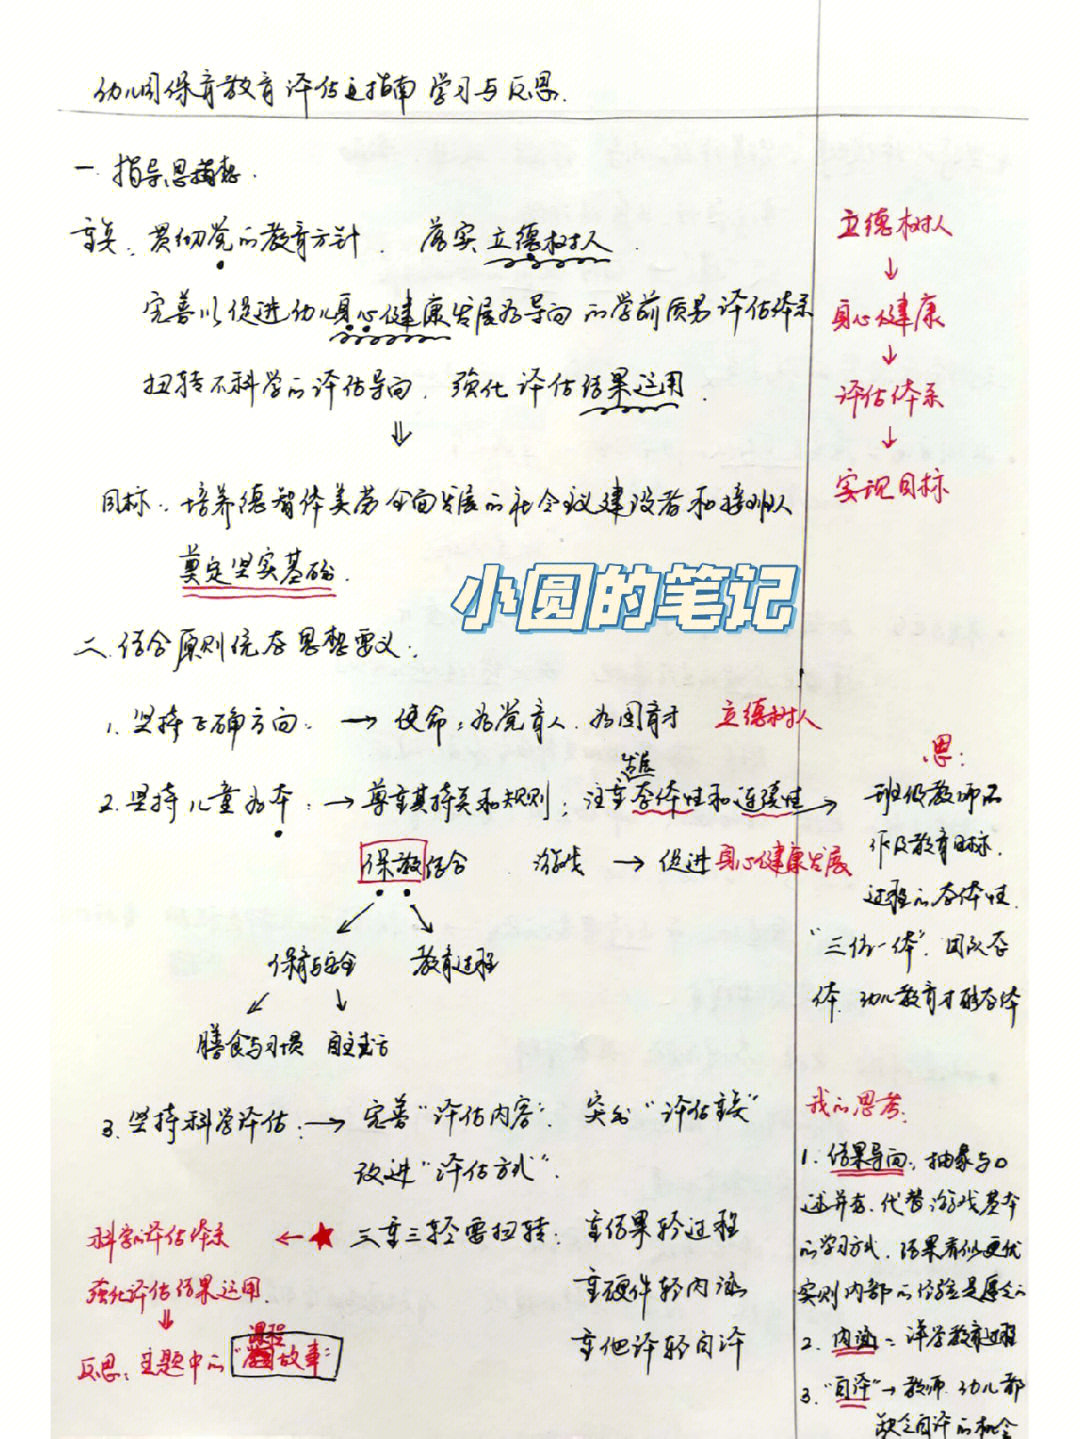 幼儿园保育教育评估指南 学习与反思.
一 指导思想.
贯彻党的教育方针 落实立德树人
完善以促进幼儿身心健康发展为导向的学前质量评估体系
扭转不科学的评估导向. 强化评估结果运用.
⇓
目标: 培养德智体美劳全面发展的社会主义建设者和接班人
奠定坚实基础.
立德树人
↓
身心健康
↓
评估体系
↓
实现目标
小圆的笔记
二.结合原则 思想要义.
1. 坚持正确方向. → 使命:为党育人.为国育才 立德树人
2. 坚持儿童为本: → 尊重其特点和规则; 注重整体性和连续性 →
发展
保教结合 游戏 → 促进身心健康发展
保育与安全 教育过程
膳食与习惯
思:
班级教师
教育目标.
过程的整体性.
"三位一体". 团队整
体. 幼儿教育才能整体
3. 坚持科学评估: → 完善"评估内容". 突出"评估重点"
改进"评估方式".
★ 三重三轻要扭转: 重结果轻过程
重硬件轻内涵
重他评轻自评
科学评估体系 ←
强化评估结果运用.
⇓
反思: 主题中的"课程故事"
我的思考.
1. 结果导向: 抽象与口
述并存.代替游戏基本
的学习方式. 结果看似更优
实则内部的经验是
2. 内涵:
3. "自评" → 教师.幼儿都
缺乏自评的机会